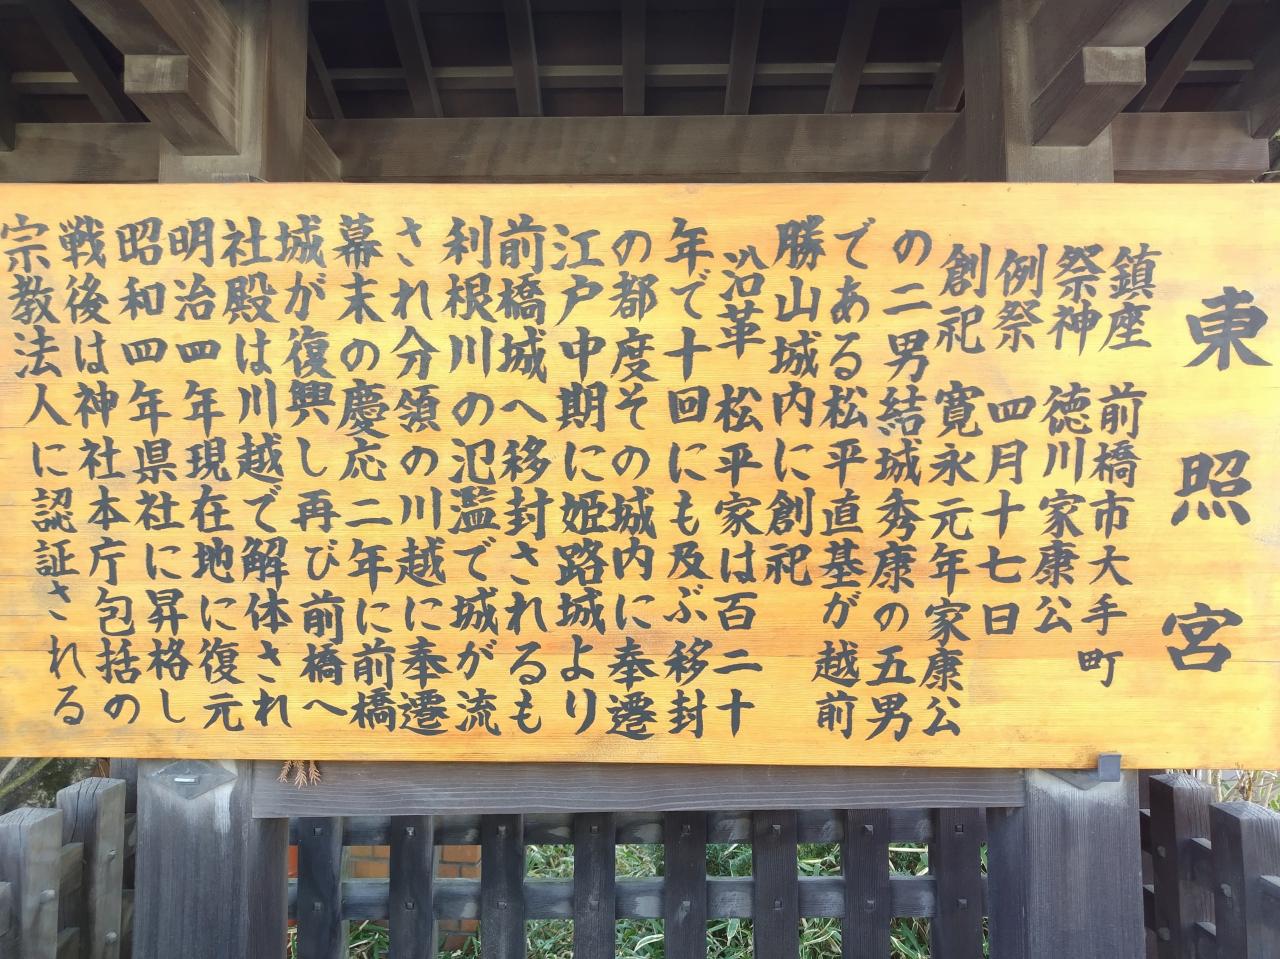 東照宮
鎮座　前橋市大手町
祭神　徳川家康公
例祭　四月十七日
創祀　寛永元年家康公
の二男結城秀康の五男
である松平直基が越前
勝山城内に創祀
沿革　松平家は百二十
年で十回にも及ぶ移封
の都度その城内に奉遷
江戸中期に姫路城より
前橋城へ移封されるも
利根川の氾濫で城が流
され分領の川越に奉遷
幕末の慶応二年に前橋
城が復興し再び前橋へ
社殿は川越で解体され
明治四年現在地に復元
昭和四年県社に昇格し
戦後は神社本庁包括の
宗教法人に認証される